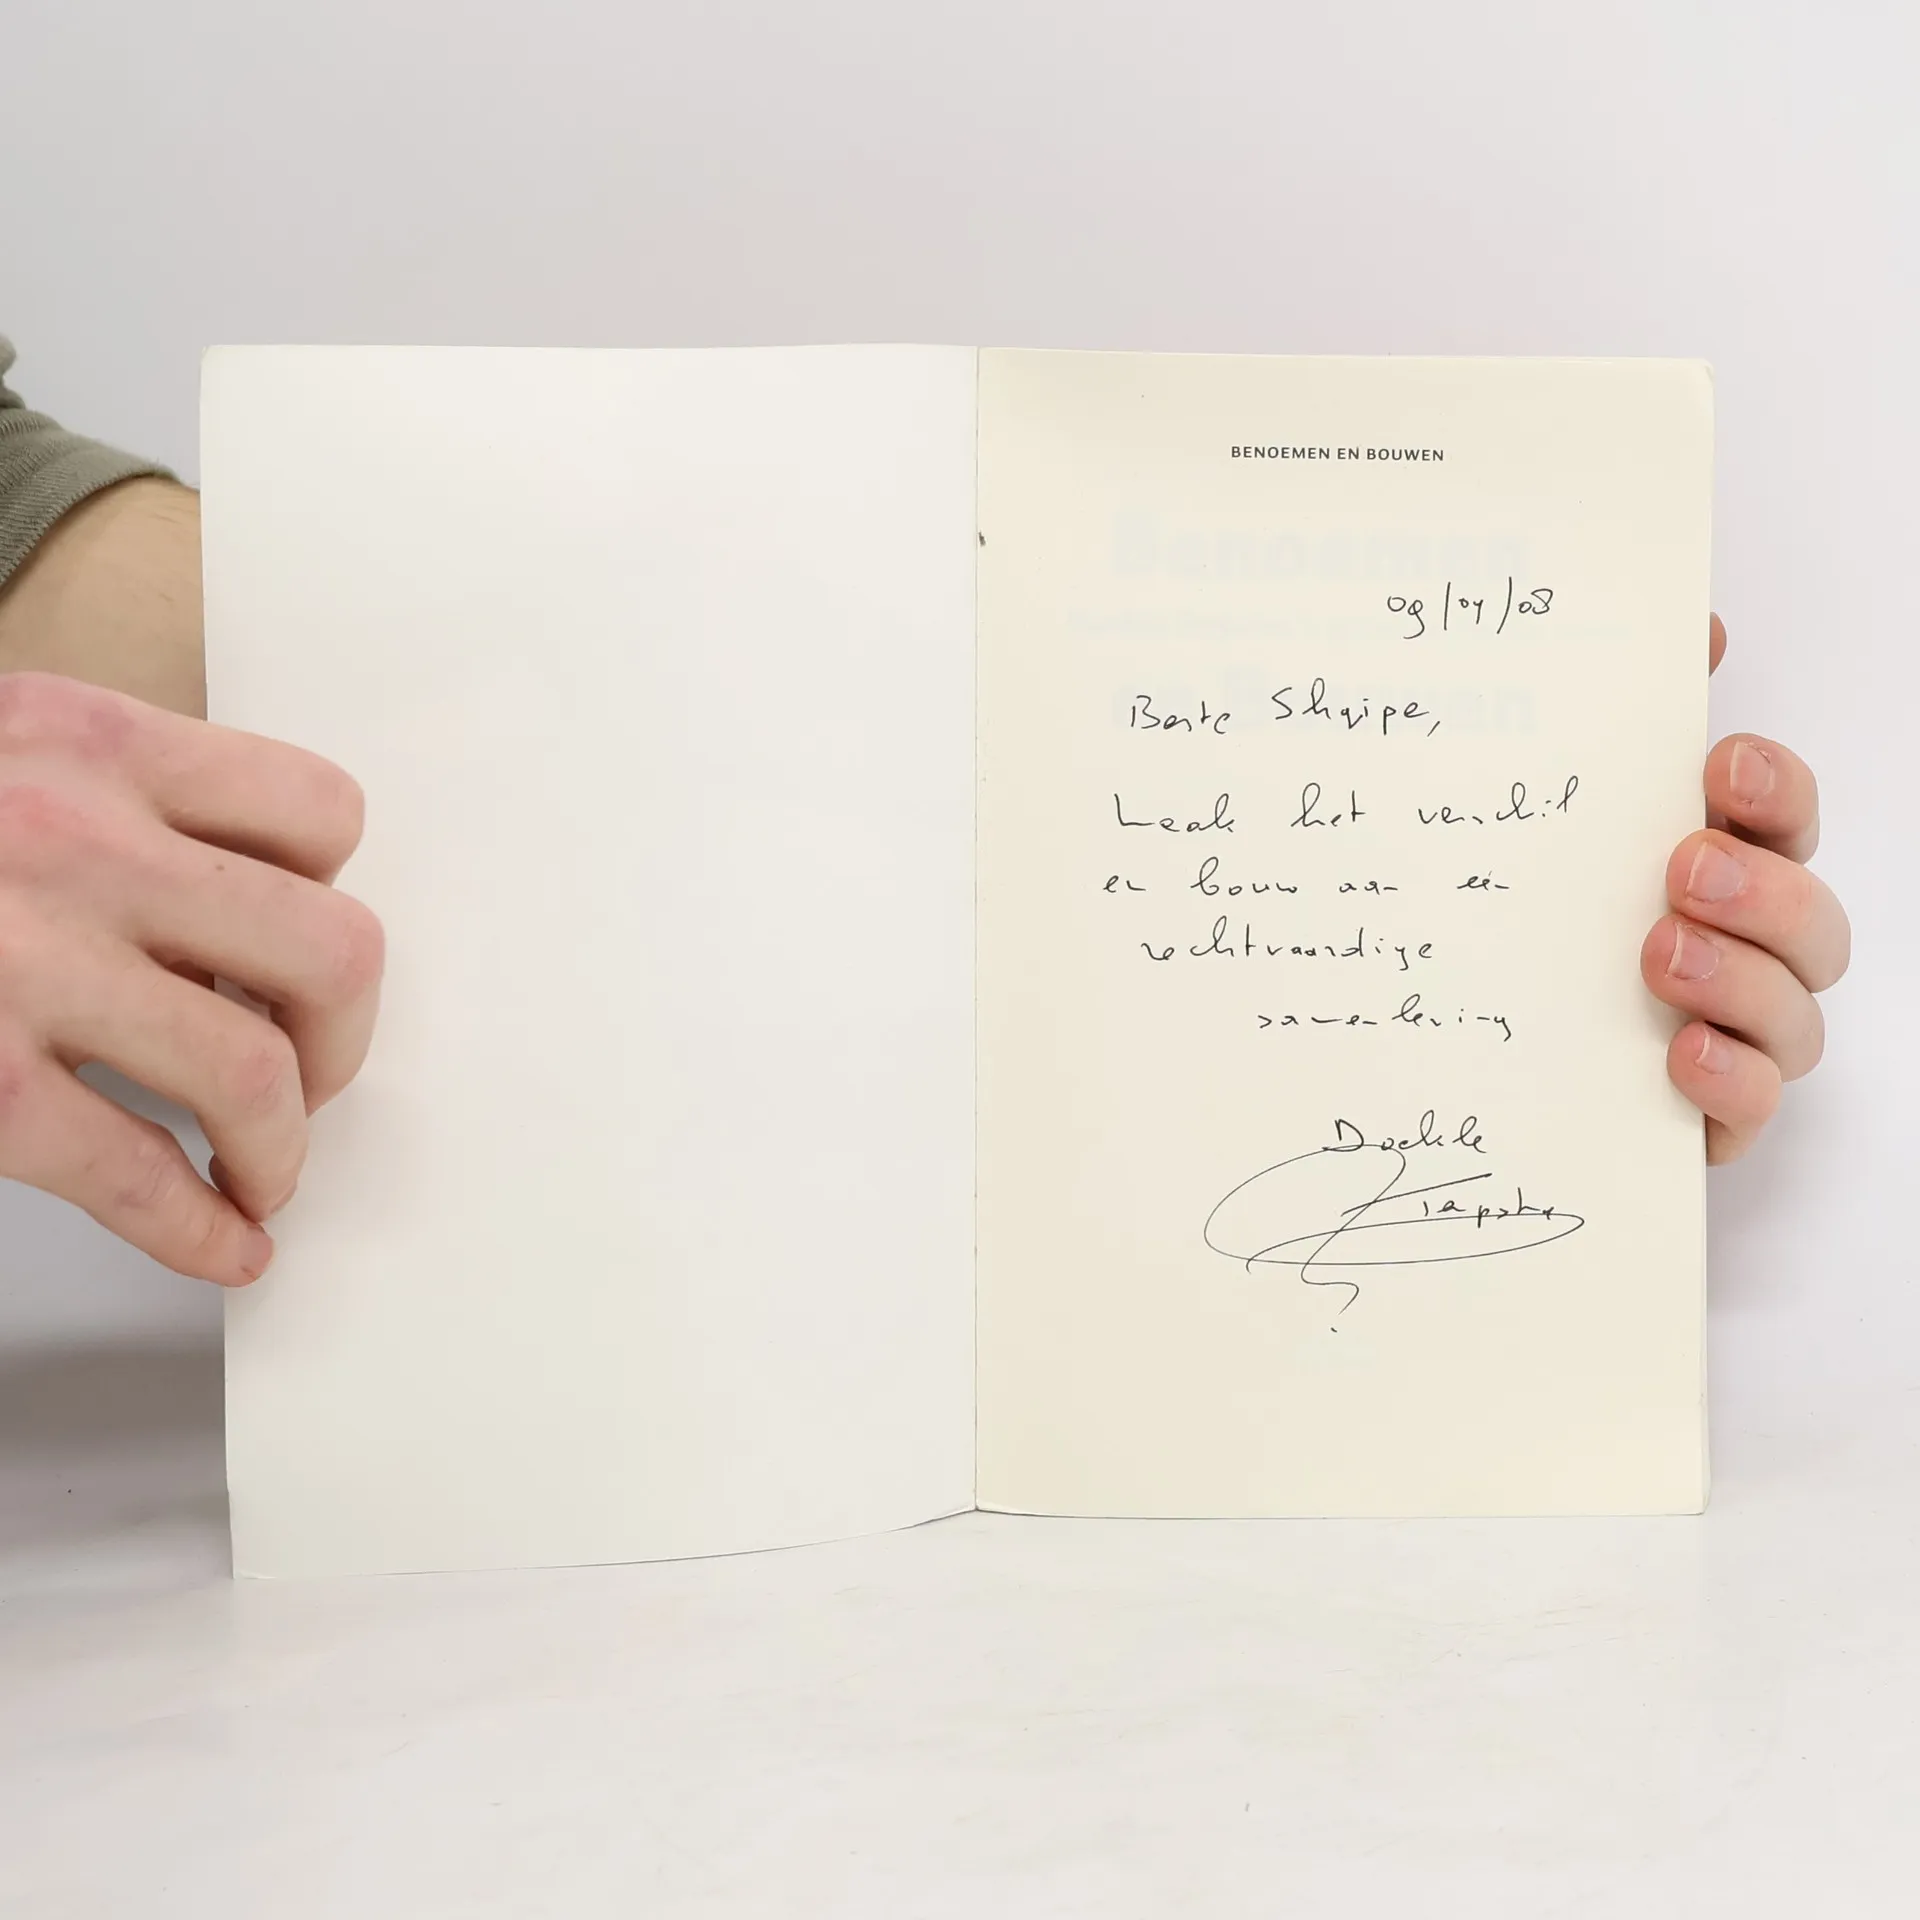 BENOEMEN EN BOUWEN
09/04/08
Beste Shqipe,
Maak het verschil
en bouw aan één
rechtvaardige
samenleving
Doekle
Terpstra